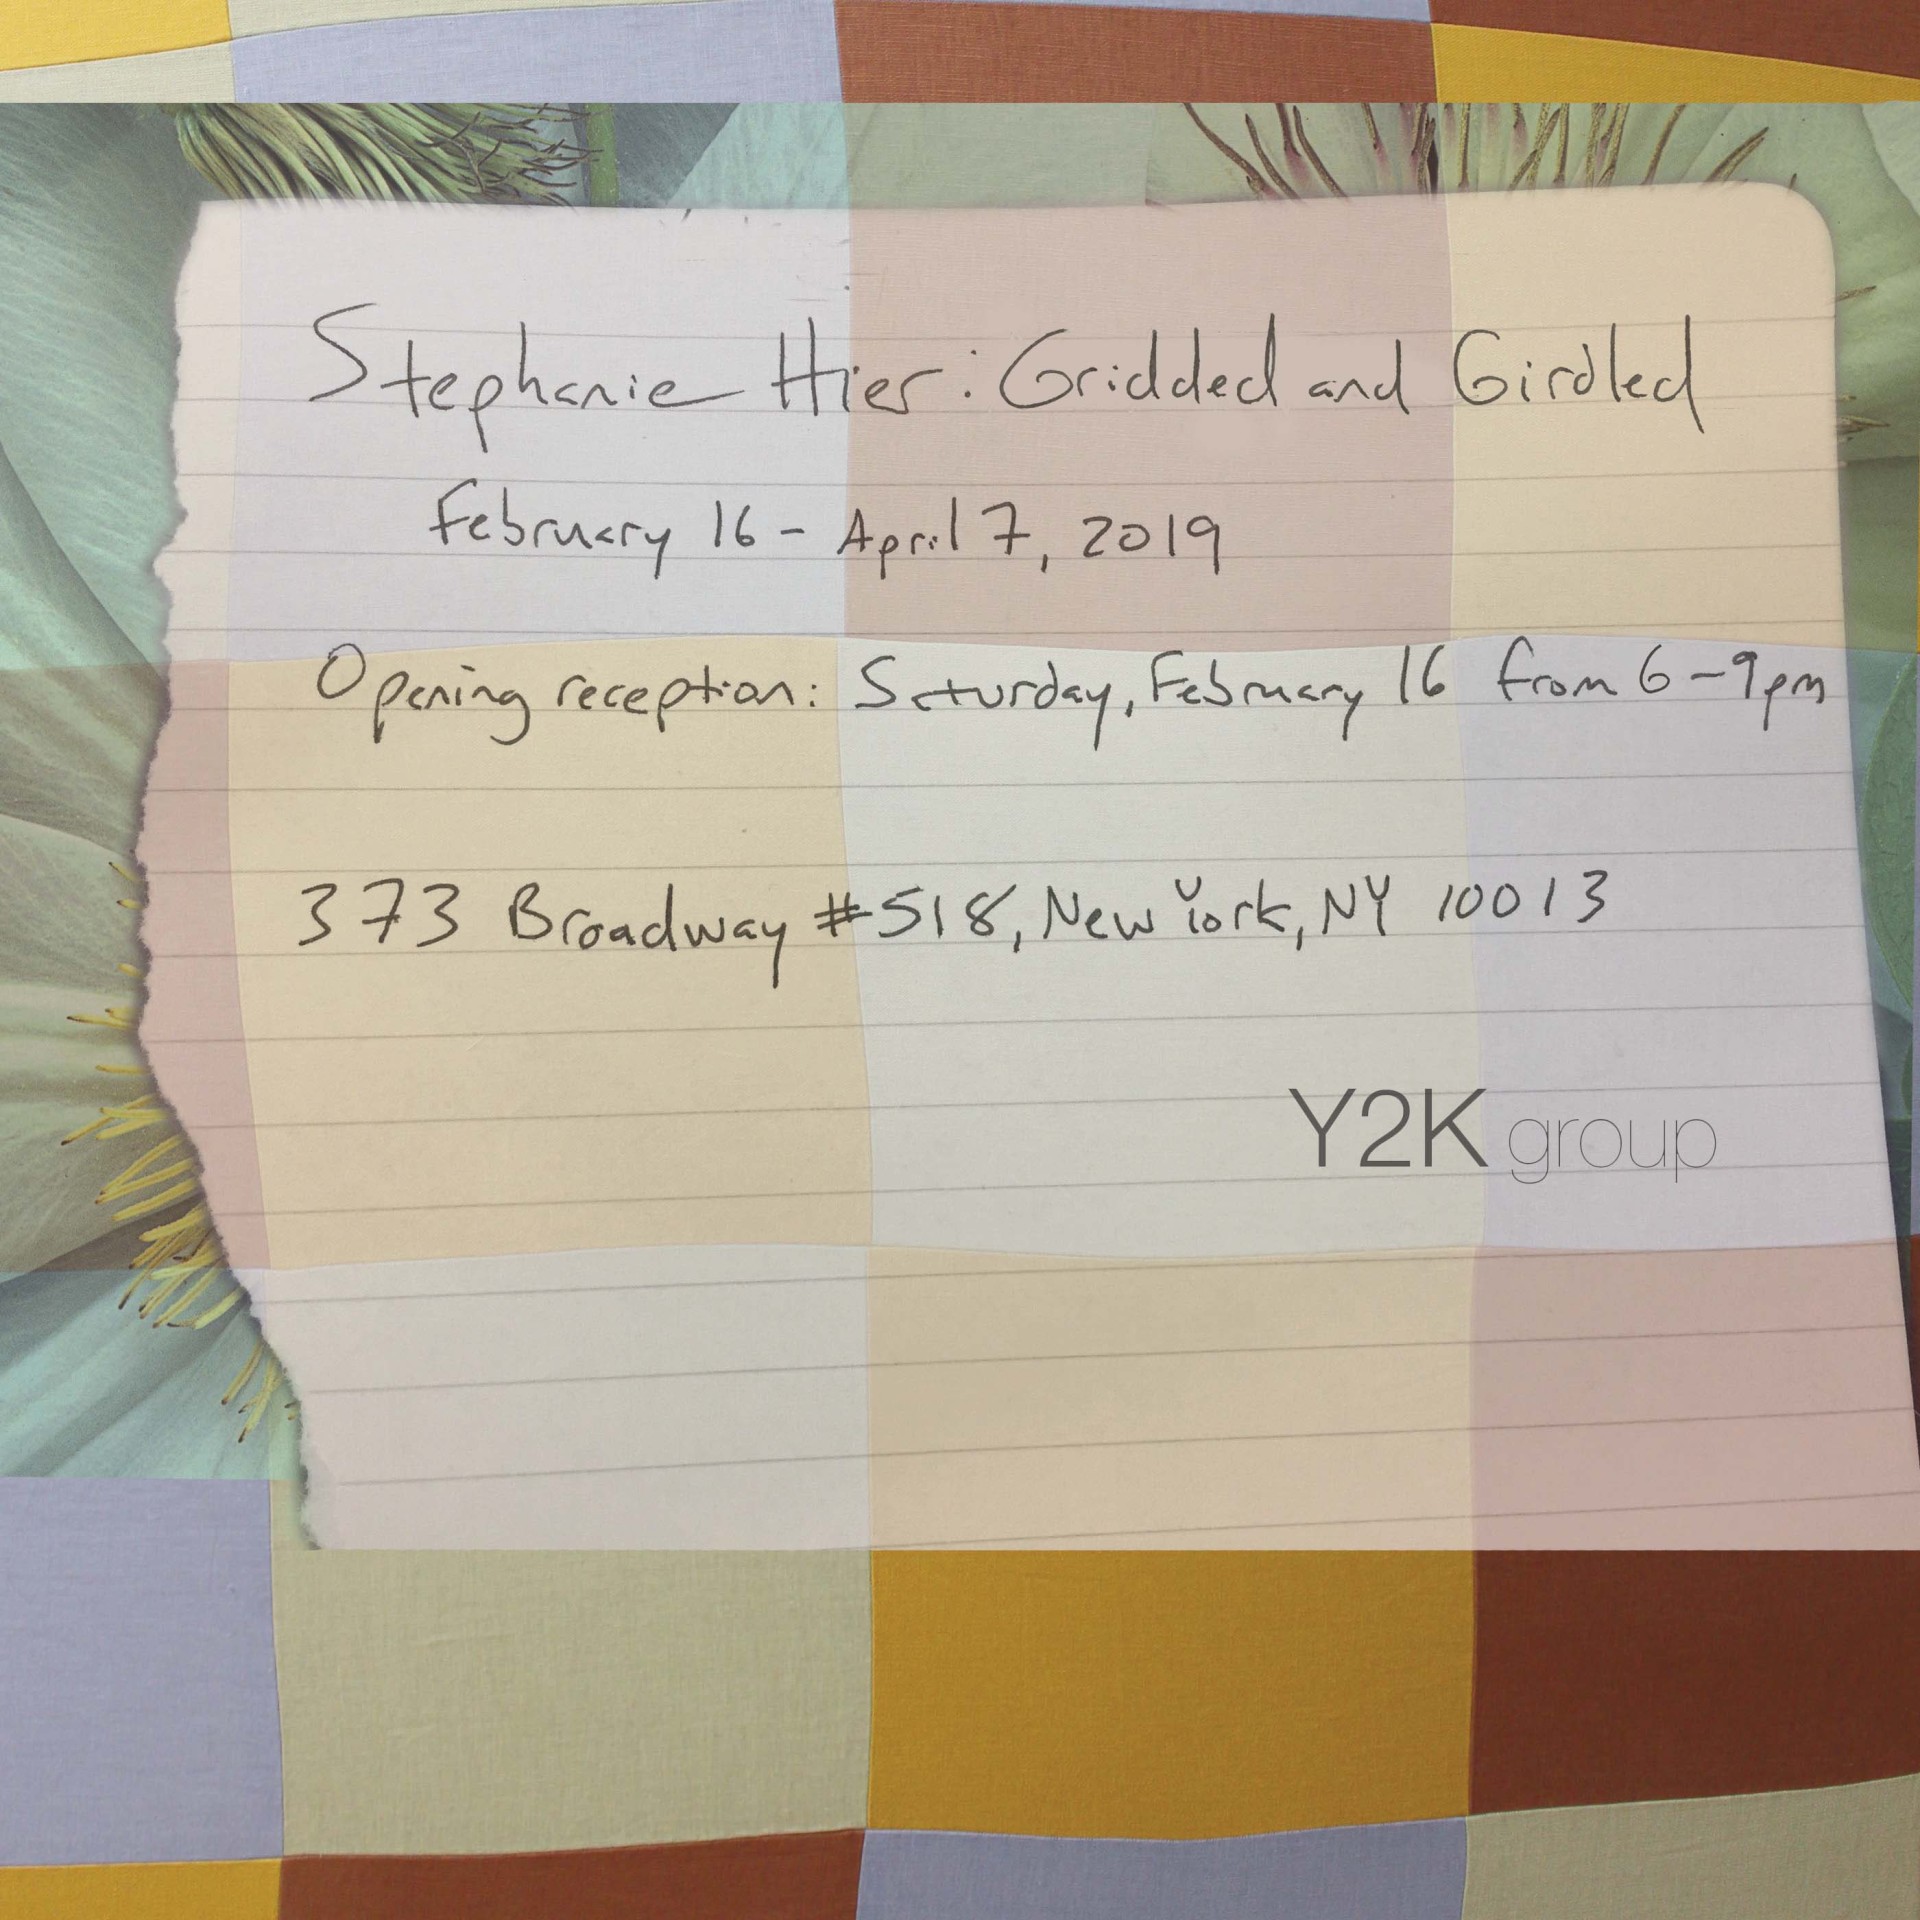 Stephanie Hier: Gridded and Girdled
February 16 - April 7, 2019
Opening reception: Saturday, February 16 from 6-9pm
373 Broadway #518, New York, NY 10013
Y2K group